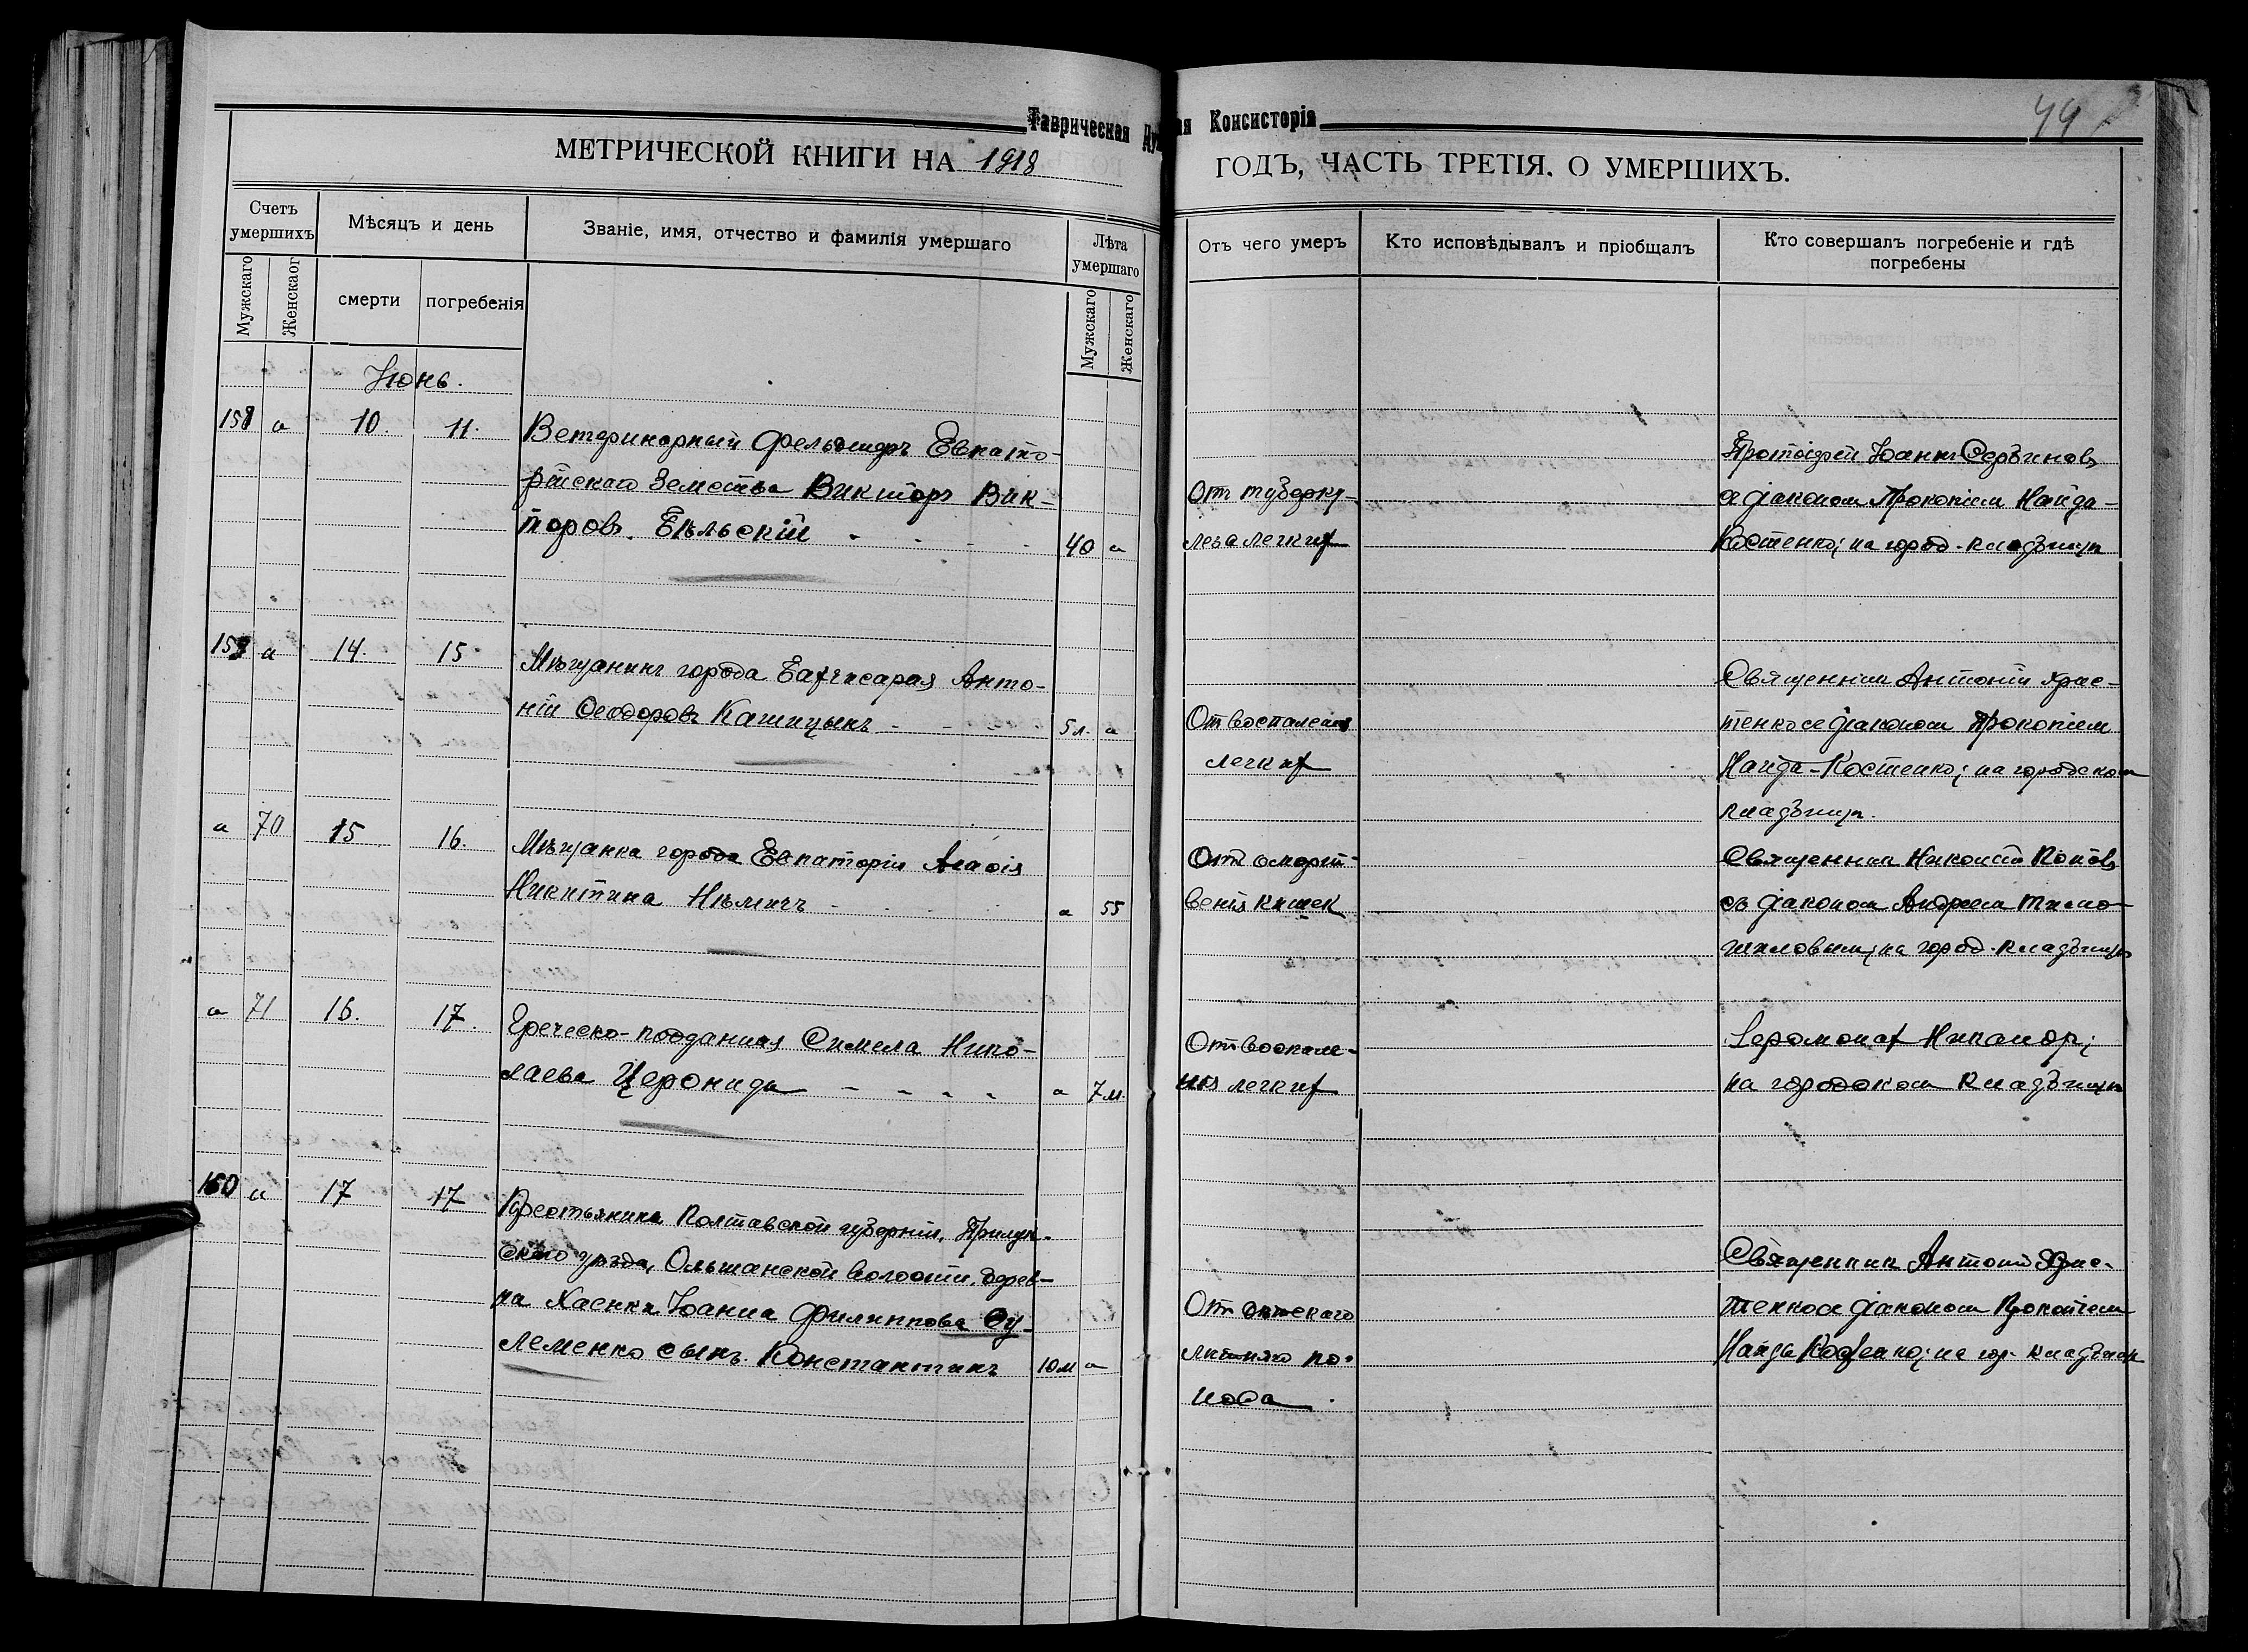 Таврическая Ду ая Консисторія
49
МЕТРИЧЕСКОЙ КНИГИ НА 1918 ГОДЪ, ЧАСТЬ ТРЕТІЯ. О УМЕРШИХЪ.
Счетъ умершихъ
Мѣсяцъ и день
Званіе, имя, отчество и фамилія умершаго
Лѣта умершаго
Отъ чего умеръ
Кто исповѣдывалъ и пріобщалъ
Кто совершалъ погребеніе и гдѣ погребены
Мужскаго
Женскаог
смерти
погребенія
Мужскаго
Женскаго
Іюнь.
158 " 10. 11.
Ветеринарный фельдшеръ Евпато-
рійскаго Земства Викторъ Вик-
торовъ Бѣльскій 40 "
Отъ туберку-
леза легкихъ
Протоіерей Іоаннъ Сербиновъ
с діаконом Прокопіем Найда-
Костенко; на город. кладбищѣ
159 " 14. 15
Мѣщанинъ города Бахчисарая Анто-
ній Ѳеодоровъ Кашицынъ 5 л. "
От воспаленія
легкихъ
Священник Антоній Хрис-
тенко с діаконом Прокопіем
Найда-Костенко; на городском
кладбищѣ.
" 70 15 16.
Мѣщанка города Евпаторіи Агаѳія
Никитина Нѣмичъ " 55
Отъ омерт-
венія кишек
Священник Николай Попов
съ діаконом Андреем Тимо-
шиловым; на город. кладбищѣ
" 71 16. 17.
Греческо-подданная Симела Нико-
лаева Церониди " 7 м.
Отъ воспале-
нія легкихъ
Іеромонах Никанор;
на городском кладбищѣ
160 " 17 17
Крестьянина Полтавской губерніи, Прилук-
скаго уѣзда, Ольшанской волости, дерев-
ни Хаенки Іоанна Филиппова Су-
леменко сынъ Константинъ 10 м "
От дѣтскаго
лѣтняго по-
носа.
Священник Антоній Хрис-
тенко с діаконом Прокопіем
Найда Костенко; на гор. кладбищѣ